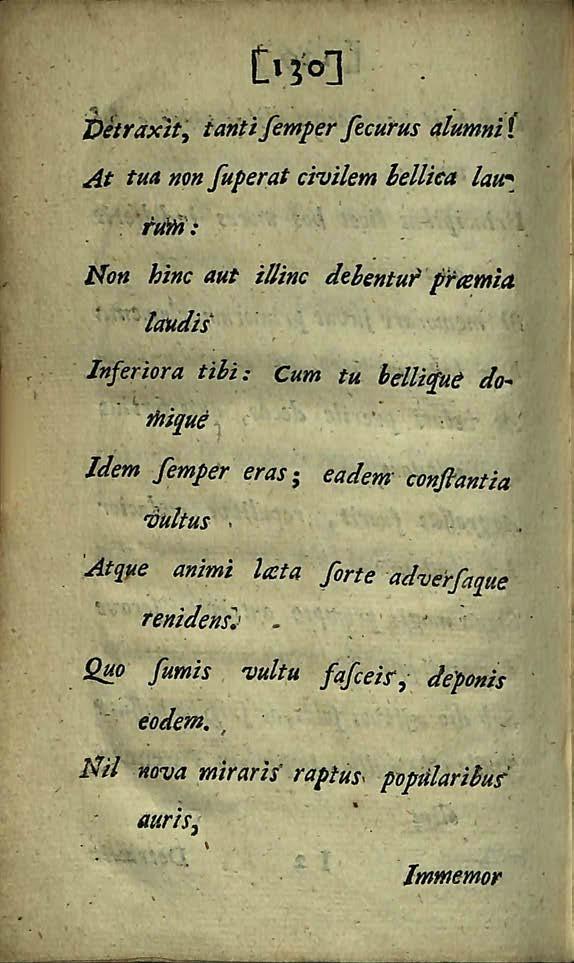 [130]
Détraxit, tanti ſemper ſecurus alumni!
At tua non ſuperat civilem bellica lau-
rum:
Non hinc aut illinc debentur præmia
laudis
Inferiora tibi: Cum tu bellique do-
mique
Idem ſemper eras; eadem conſtantia
vultus
Atque animi læta ſorte adverſaque
renidens.
Quo ſumis vultu faſceis, deponis
eodem.
Nil nova miraris raptus popularibus
auris,
Immemor